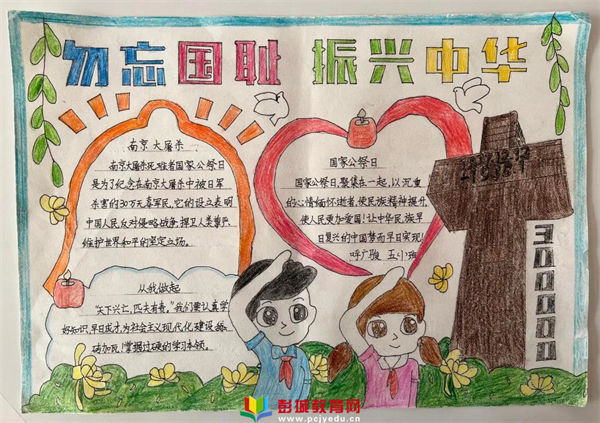 勿忘国耻 振兴中华
南京大屠杀
南京大屠杀死难者国家公祭日
是为了纪念在南京大屠杀中被日军
杀害的30万无辜军民,它的设立表明
中国人民反对侵略战争、捍卫人类尊严
维护世界和平的坚定立场。
国家公祭日
国家公祭日,聚集在一起,以沉重
的心情缅怀逝者,使民族精神提升,
使人民更加爱国!让中华民族早
日复兴的中国梦而早日实现!
呼广骏 五小班
从我做起
“天下兴亡,匹夫有责。”我们要认真学
好知识,早日成才,为社会主义现代化建设添
砖加瓦!掌握过硬的学习本领。
300000
彭城教育网
www.pcjyedu.cn